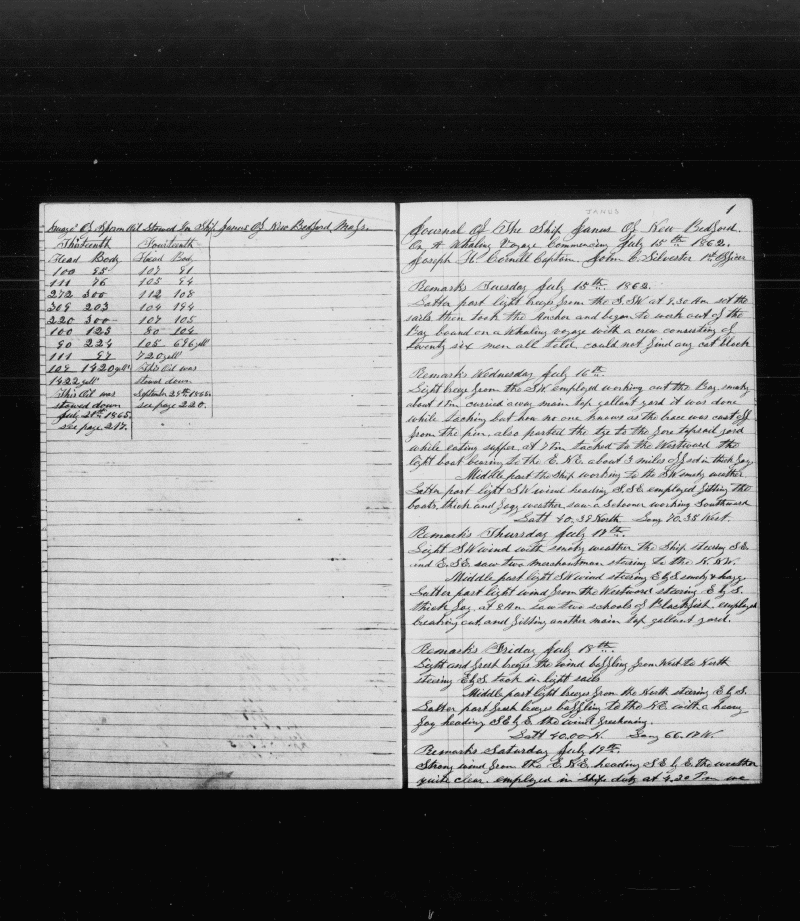 Guage Of Sperm Oil Stowed In Ship Janus Of New Bedford, Mass.
Thirteenth Fourteenth
Head Body Head Body
100 85 107 91
111 76 105 94
272 300 112 108
309 203 104 194
220 300 107 105
100 123 80 104
90 224 105 696 gall
111 97 720 gall
109 1420 galls This Oil was
1422 galls stowed down
This Oil was September 29th 1865.
stowed down see page 220.
July 21th 1865.
see page 217.
JANUS
1
Journal Of The Ship Janus Of New Bedford.
On A Whaling Voyage Commencing July 15th 1862.
Joseph H. Cornell Captain. John C. Silvester 1st Officer
Remarks Tuesday July 15th 1862.
Latter part light breeze from the S.SW at 9,30 Am set the
sails then took the Anchor and began to work out of the
Bay bound on a Whaling voyage with a crew consisting of
Twenty six men all told could not find any cat block
Remarks Wednesday July 16th
Light breeze from the SW employed working out the Bay. smoky
about 1 Pm carried away main top gallant yard it was done
while tacking but how no one knows as the brace was cast off
from the pin, also parted the tye to the fore topsail yard
while eating supper. at 7 Pm tacked to the Westward the
light boat bearing to the E.NE about 3 miles off in thick fog
Middle part the Ship working to the SW smoky weather
Latter part light SW wind heading S.SE employed fitting the
boats, thick and fogy weather saw a schooner working Southward
Latt 40.38 North Long 70.35 West.
Remarks Thursday July 17th.
Light SW wind with smoky weather the Ship steering SE
and E.SE saw two merchantman steering to the N.NW.
Middle part light SW wind steering E by S smoky & hazy.
Latter part light wind from the Westward steering E by S.
thick fog, at 8 Am saw two schools of Blackfish. employed
breaking out, and fitting another main top gallant yard.
Remarks Friday July 18th.
Light and fresh breezes the wind baffling from West to North
steering E by S took in light sails
Middle part light breezes from the North steering E by S.
Latter part fresh breezes baffling to the NE with a heavy
fog heading SE by E. the wind freshening.
Latt 40.00 N. Long 66.17 W.
Remarks Saturday July 19th.
Strong wind from the E.NE heading SE by E. the weather
quite clear. employed in Ships duty at 4.30 Pm we